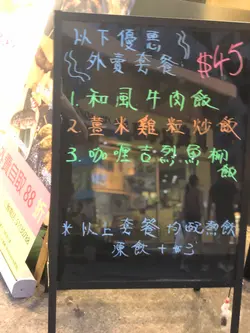 以下優惠
外賣套餐
$45
1. 和風牛肉飯
2. 薏米雞粒炒飯
3. 咖喱吉烈魚柳
飯
* 以上套餐均配熱飲
凍飲+$3
88